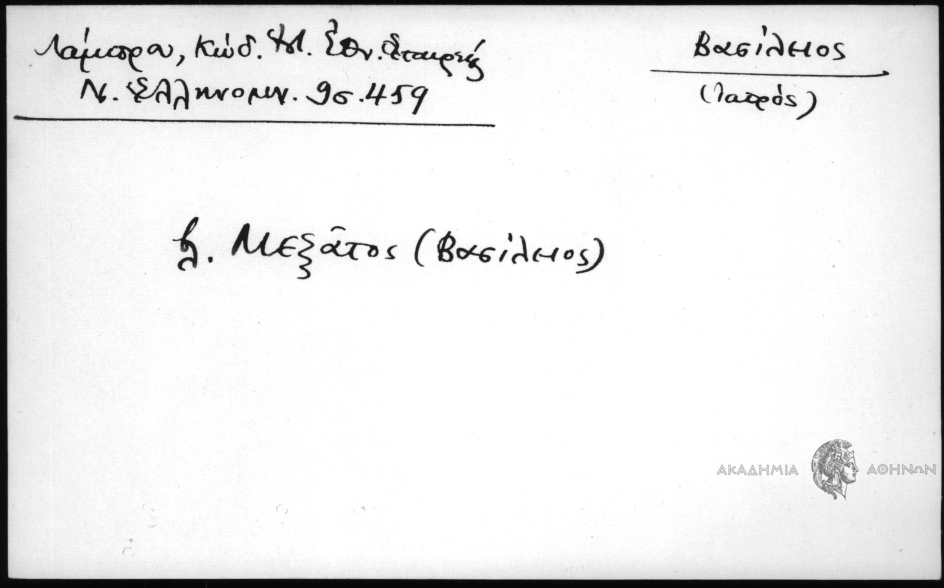 Λάμπρου, Κώδ. Ἱστ. Ἐθν. Ἑταιρείας
Ν. Ἑλληνομν. 9σ. 459
Βασίλειος
(ἰατρός)
βλ. Μεξᾶτος (Βασίλειος)
ΑΚΑΔΗΜΙΑ ΑΘΗΝΩΝ